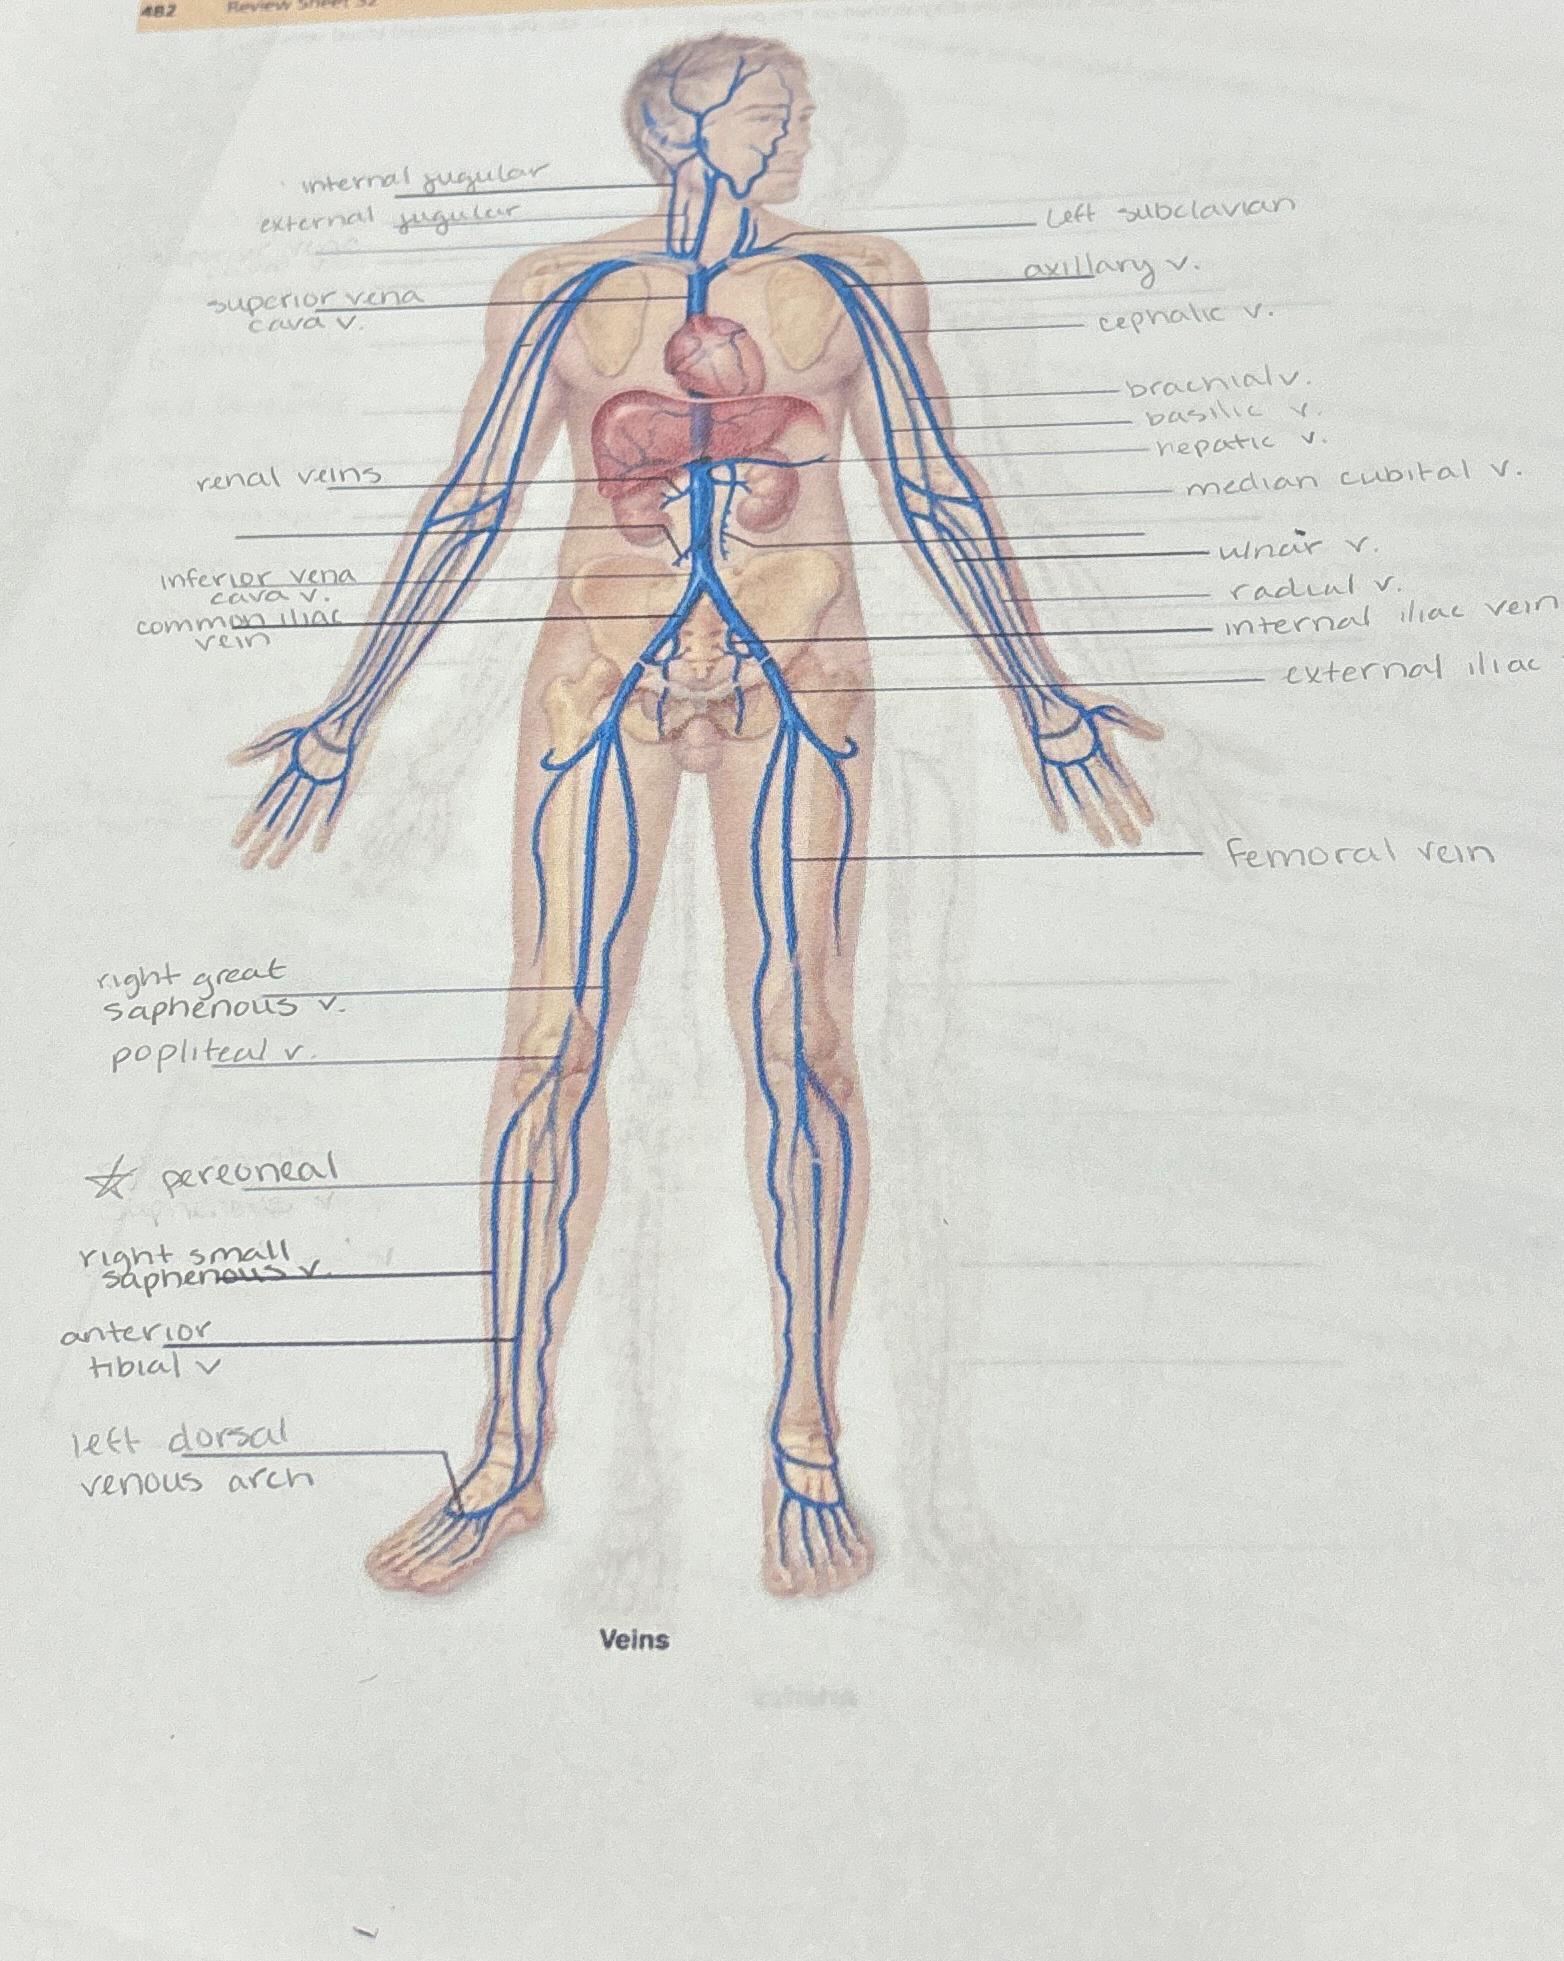 482 Review Sheet 32
internal jugular
external jugular
left subclavian
axillary v.
superior vena
cava v.
cephalic v.
brachial v.
basilic v.
hepatic v.
renal veins
median cubital v.
ulnar v.
inferior vena
cava v.
radial v.
common iliac
vein
internal iliac vein
external iliac
femoral vein
right great
saphenous v.
popliteal v.
pereoneal
right small
saphenous v.
anterior
tibial v
left dorsal
venous arch
Veins